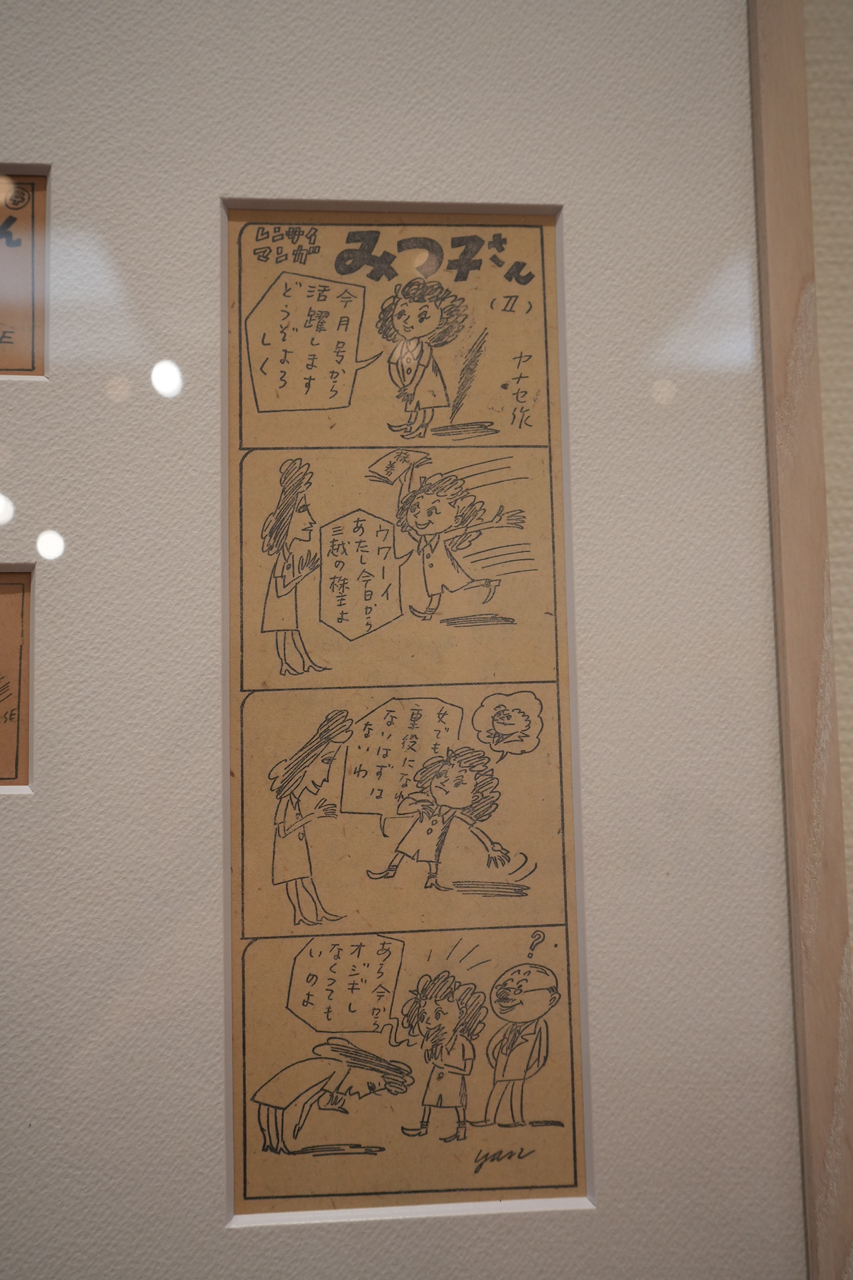 レンサイ
マンガ
みつ子さん
(II)
ヤナセ作
今月号から
活躍します
どうぞよろ
しく
株券
ウワーイ
あたし今日から
三越の株主よ
女でも
重役になれ
ないはずは
ないわ
あら今から
オジギし
なくっても
いのよ
?
yan
ん
E
SE